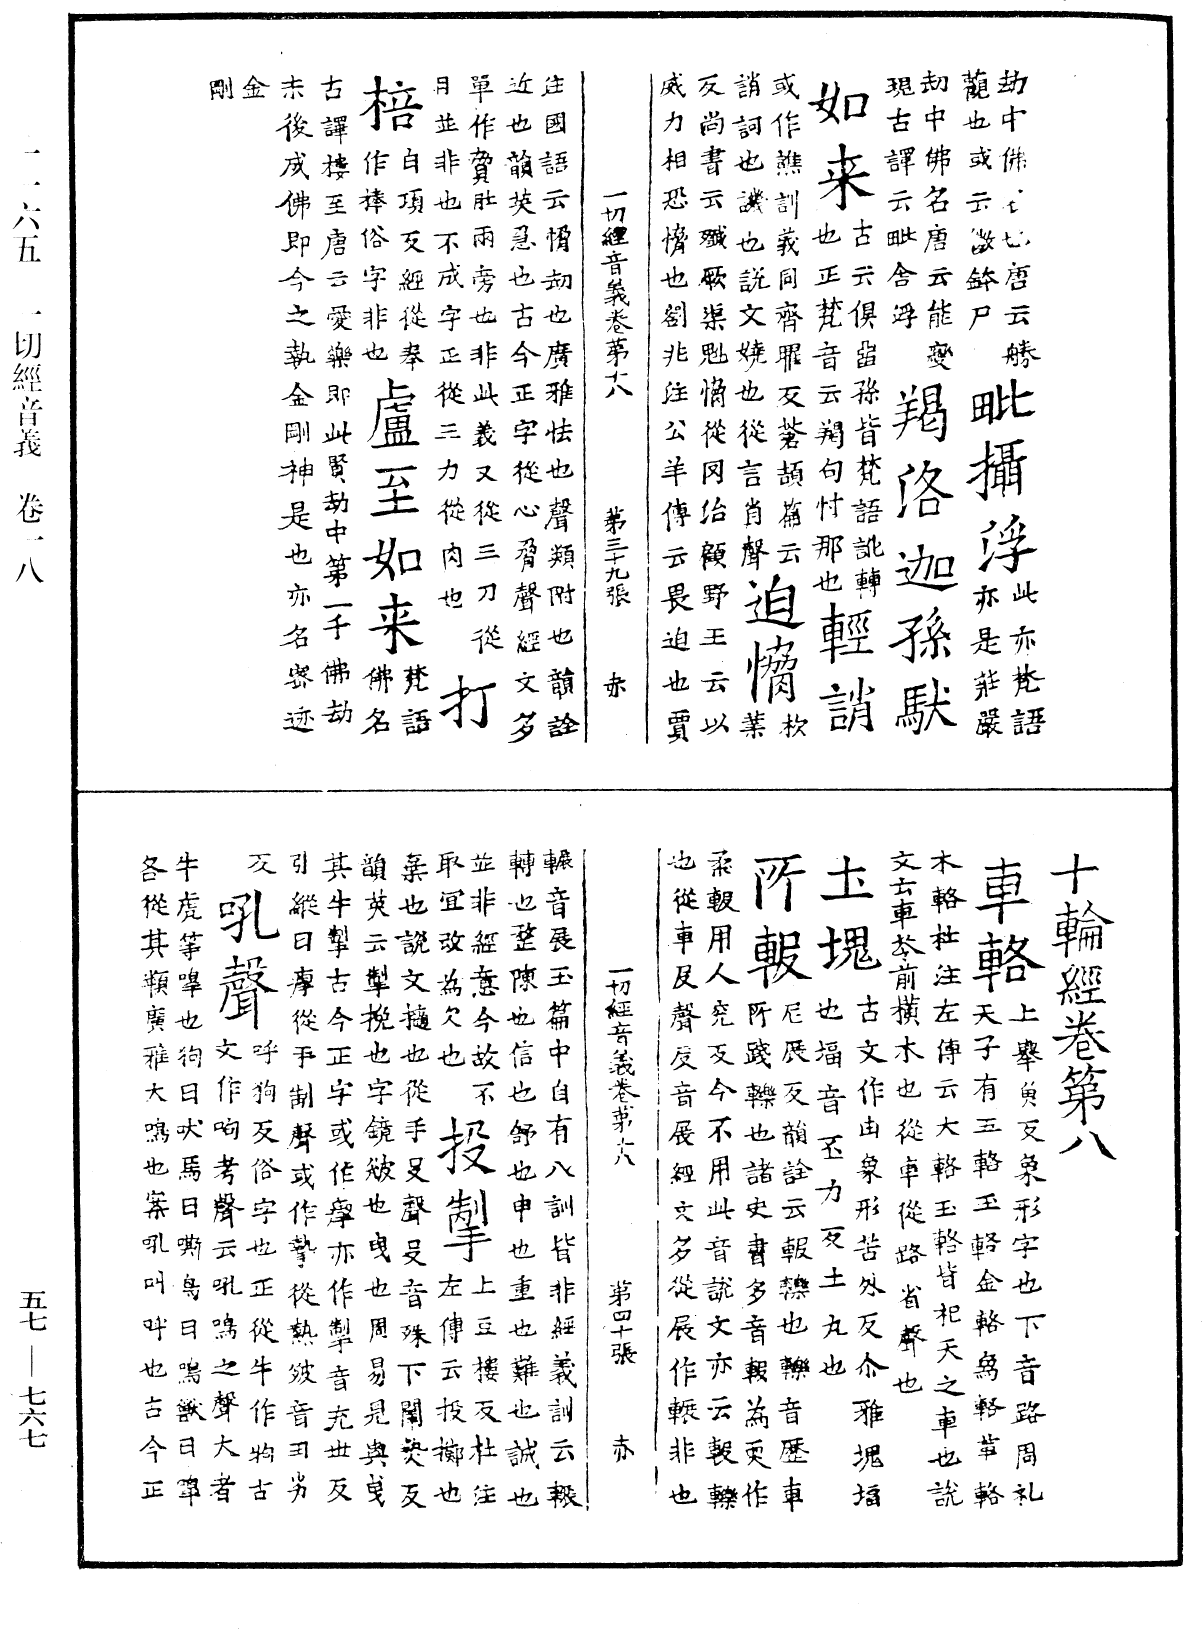 劫中佛 也唐云勝
蘬也或云 鉢尸
毗攝浮
此亦梵語
亦是莊嚴
劫中佛名唐云能變
現古譯云毗舍浮
羯洛迦孫馱
如来
古云俱留孫皆梵語訛轉
也正梵音云羯句忖那也
輕誚
或作譙訓義同齊曜反蒼頡篇云
誚訶也譏也說文嬈也從言肖聲
迫憜
杴業
反尚書云殲厥渠魁憜從罔治顧野王云以
威力相恐憜也劉兆注公羊傳云畏迫也賈
一切經音義卷第十八 第三十九張 赤
注國語云憜劫也廣雅怯也聲類附也韻詮
近也韻英急也古今正字從心脅聲經文多
單作脅肚兩旁也非此義又從三刀從
月並非也不成字正從三力從肉也
打棓
白項反經從奉
作棒俗字非也
盧至如来
梵語佛名
古譯樓至唐云愛樂即此賢劫中第一千佛劫
末後成佛即今之執金剛神是也亦名密迹
金剛
十輪經卷第八
車輅
上舉魚反象形字也下音路周礼
天子有五輅玉輅金輅象輅革輅
木輅杜注左傳云大輅玉輅皆祀天之車也說
文云車軨前橫木也從車從路省聲也
土塊
古文作凷象形苦外反尒雅塊堛
也堛音丕力反土丸也
所輾
尼展反韻詮云輾轢也轢音歷車
所踐轢也諸史書多音輾為更作
柔輾用人兖反今不用此音說文亦云輾轢
也從車㞋聲㞋音展經文多從展作輾非也
一切經音義卷第十八 第四十張 赤
輾音展玉篇中自有八訓皆非經義訓云輾
轉也整陳也信也舒也申也重也難也誠也
並非經意今故不
取宜改為欠也
投掣
上豆樓反杜注
左傳云投擲也
棄也說文擿也從手殳聲殳音殊下闡熱反
韻英云掣挽也字鏡皴也曳也周易見輿曳
其牛掣古今正字或作㨖亦作掣音充世反
引縱曰㨖從手制聲或作摯從熱皴音丑劣
反
吼聲
呼狗反俗字也正從牛作㸸古
文作呴考聲云吼鳴之聲大者
牛虎等嘷也狗曰吠馬曰嘶鳥曰鳴獸曰嘷
各從其類廣雅大鳴也案吼叫呼也古今正
一一六五 一切經音義 卷一八
五七—七六七